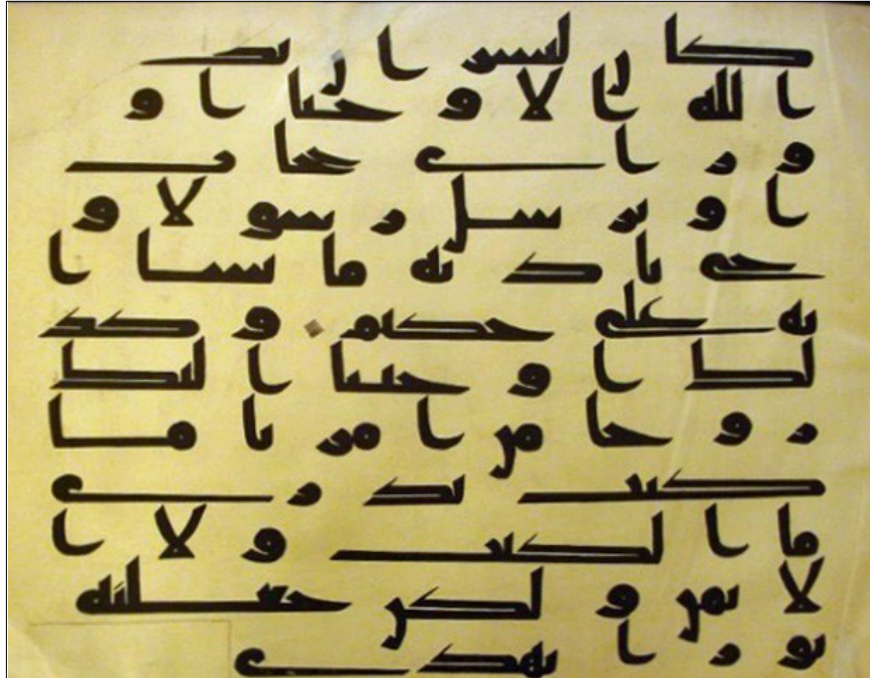 كا لبشر ا ن يكد
ا لله ا لا و حيا ا و
و ر ا ى حجا ب
ا و ير سل ر سو لا فو
حى باذ نه ما يشا ا
نه على حكيم و كذ
لك ا و حينا ا ليك
ر و حا من ا مر نا ما
كنت تد ر ى
ما ا لكتب و لا ا
لا يمن و لكن جعلنه
نو ر ا نهدى